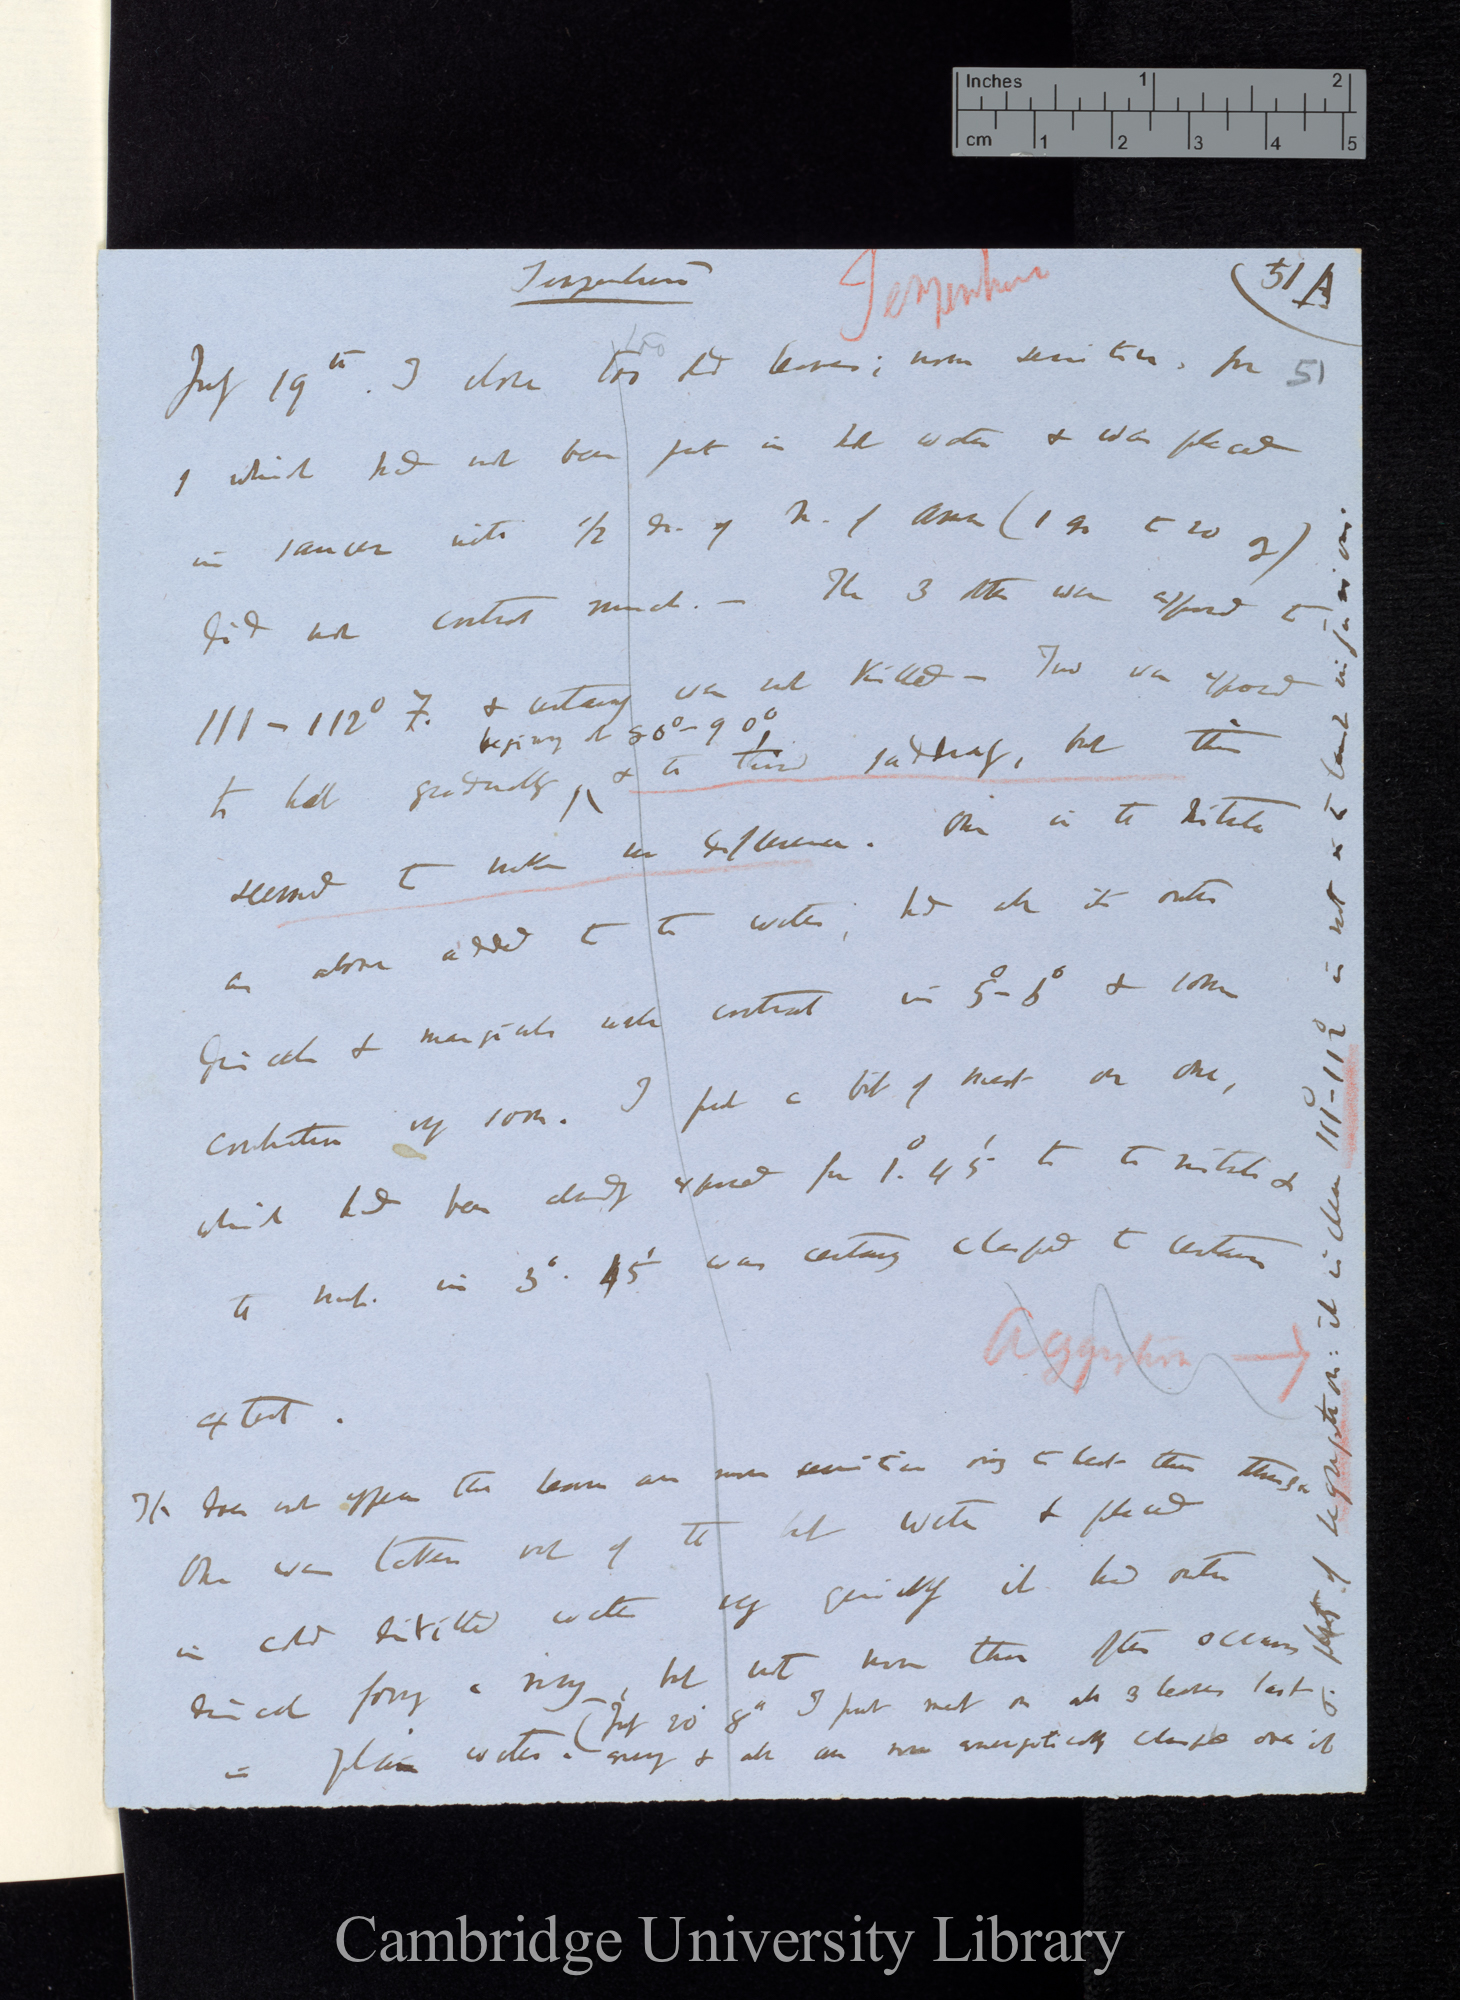 Inches 1 2
cm 1 2 3 4 5
Temperature
Temperature
51 A
51
July 19th. I chose too old leaves; none sensitive, for
1 which had not been put in hot water & was placed
in saucer with 1/2 dr. of N. of Amm (1 gr to 20 oz)
did not contract much. — The 3 others were exposed to
111 – 112° F. & certainly were not killed — Two were exposed
beginning at 80° – 90°
to heat gradually, & the third suddenly, but this
seemed to make no difference. One in the Nitrate
as above added to the water, had all its outer
& marginals well contracted in 5° – 6° & some
contraction very soon. I put a bit of meat on one,
which had been already exposed for 1°. 45' to the nitrate &
the meat. in 3°. 15' was certainly clasped to certain
Aggregation →
extent.
It does not appear that leaves are more sensitive owing to heat than though
One was taken out of the hot water & placed
in cold distilled water very quickly it had outer
forming a ring, but not more than often occurs
in plain water. (July 20' 8° I put meat on all 3 leaves last
& all are now energetically clasped over it
of aggregation: it is clear 111° – 112° is not to leaf injurious.
Cambridge University Library